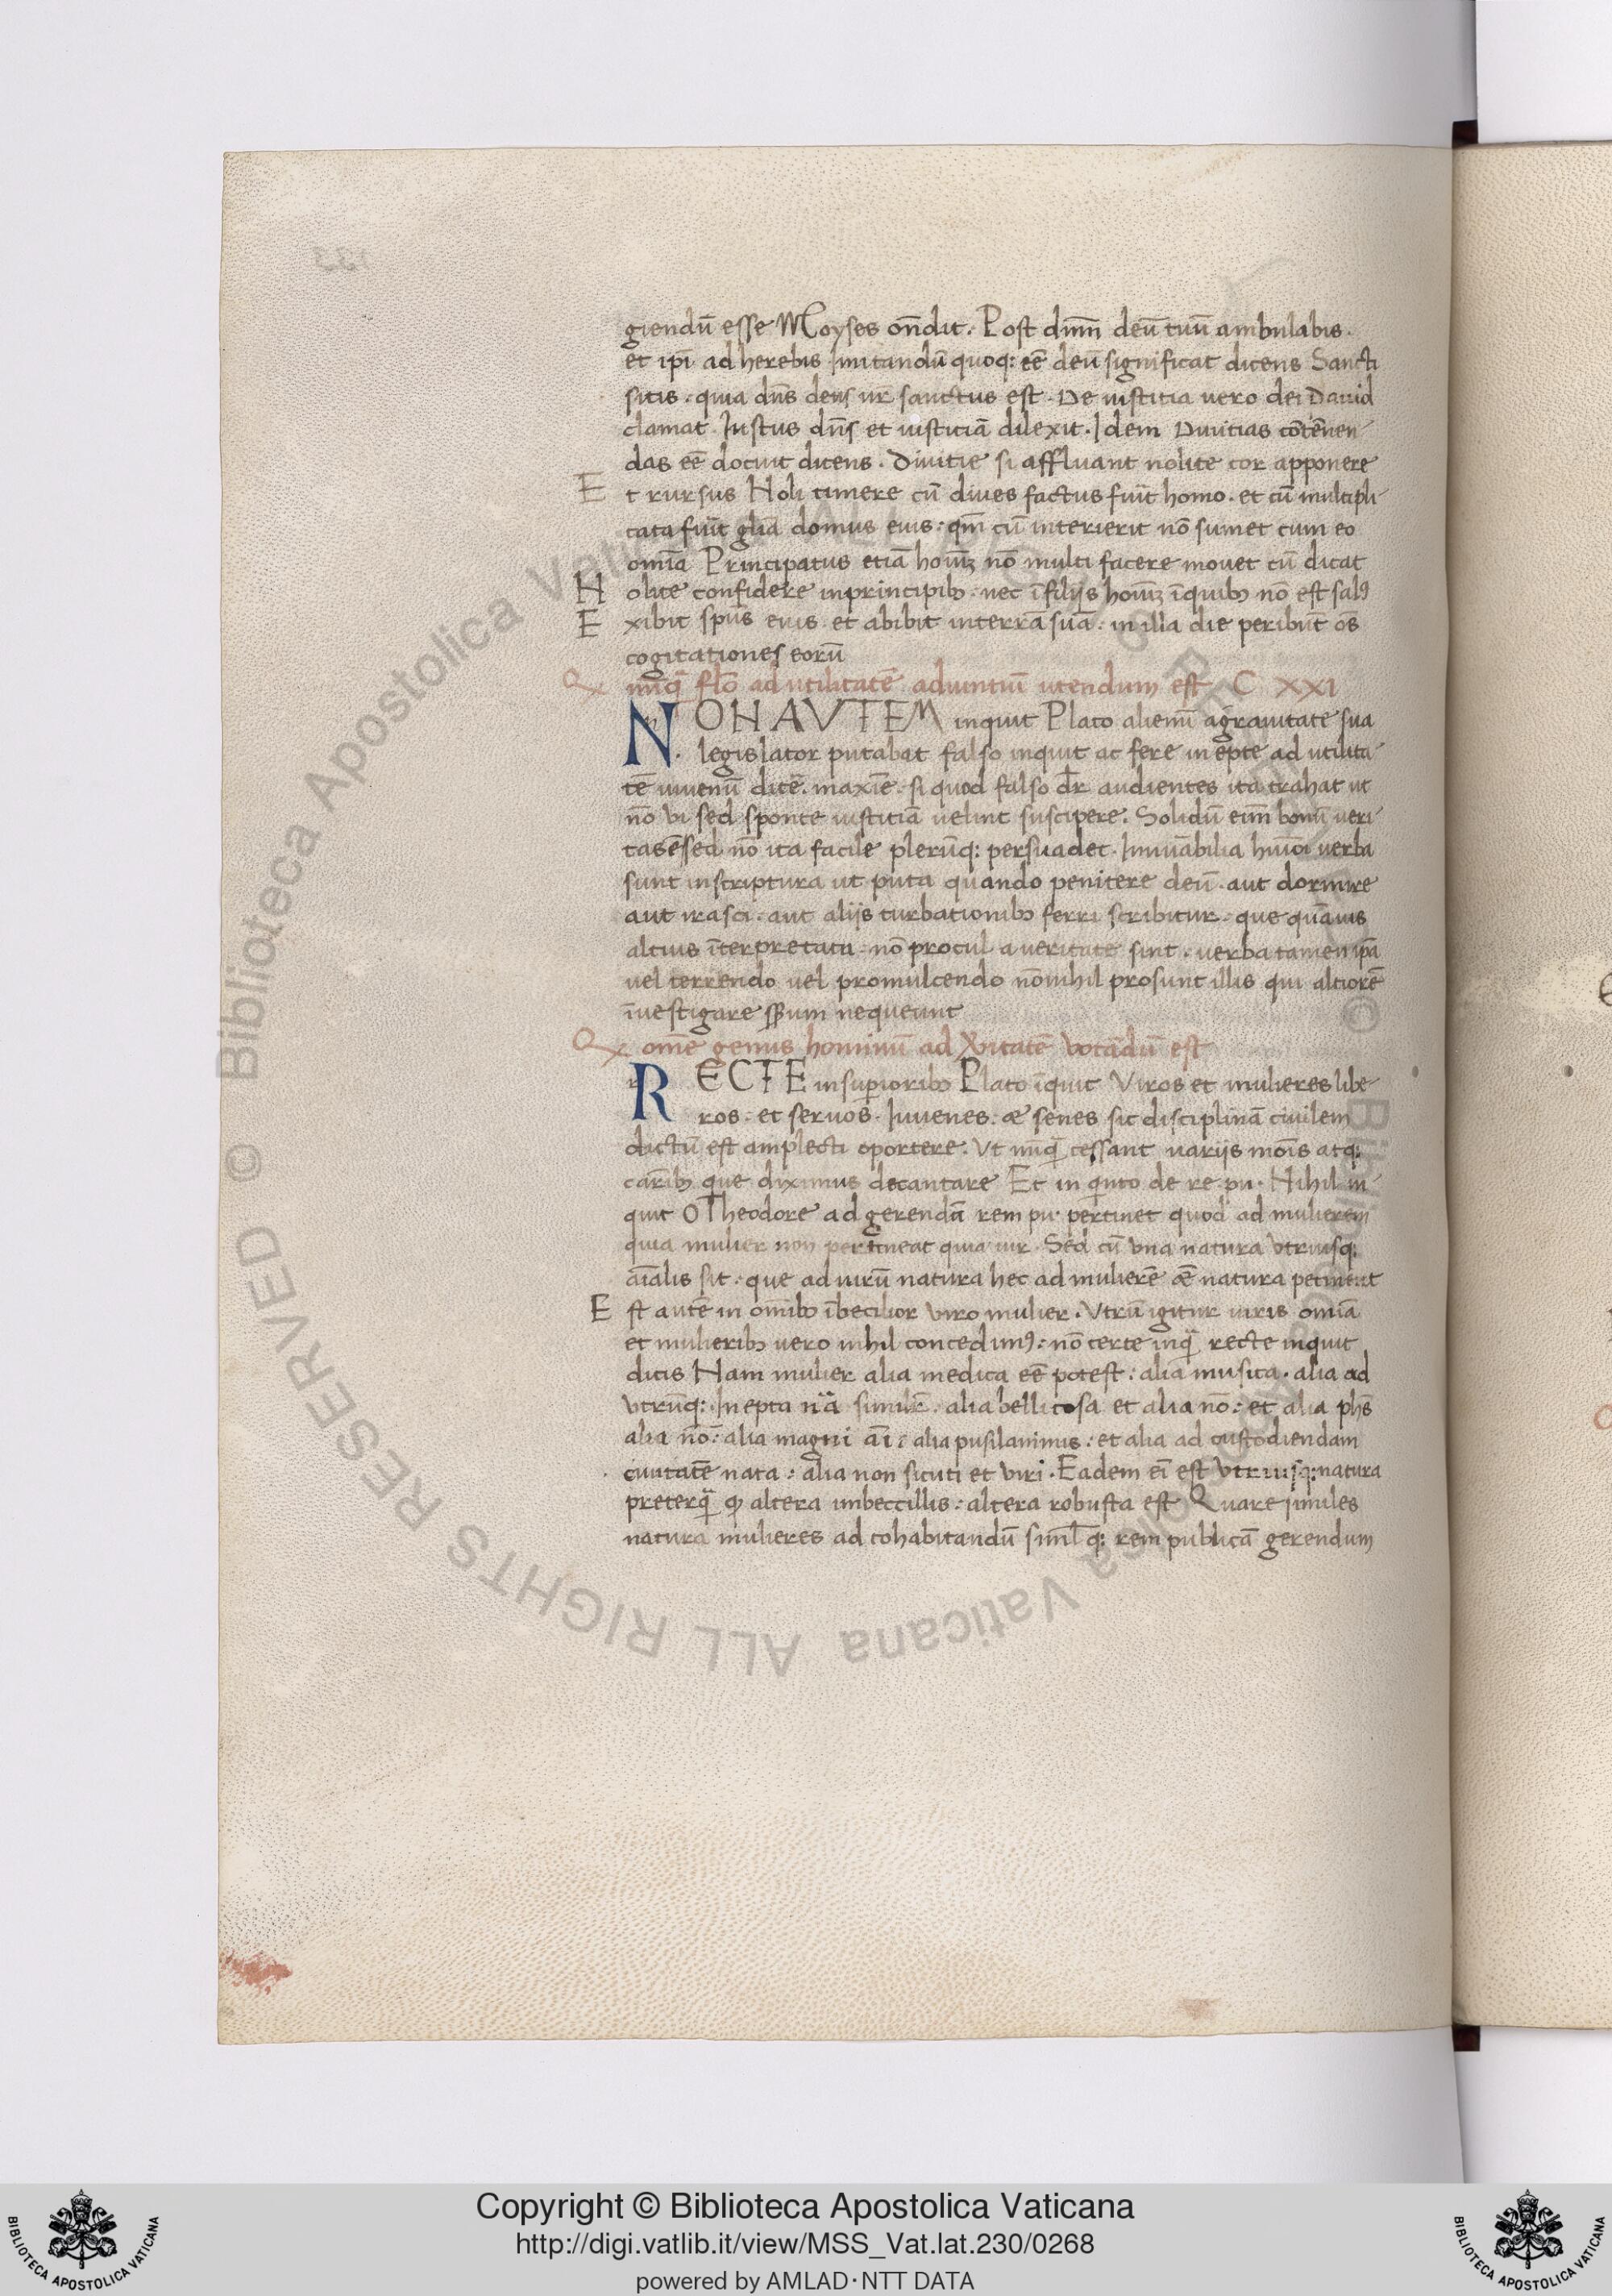 giendū esse Moyses ondit. Post dnm̄ deū tuū ambulabis.
et ip̄i adherebis Imitandū quoq: eē deū significat dicens Sancti
sitis. quia dn̄s deus ur̄ sanctus est. De iustitia uero dei Dauid
clamat. Iustus dn̄s et iusticiā dilexit. Idem Diuitias cōtēnen
das eē docuit dicens. Diuitie si affluant nolite cor apponere
Et rursus Noli timere cū diues factus fuīt homo. et cū multipli
cata fuīt glīa domus eius: qm̄ cū interierit nō sumet cum eo
omīa Principatus etiā hoīuꝫ nō multi facere mouet cū dicat
Nolite confidere in principibꝫ. nec ī filijs hoīuꝫ ī quibꝫ nō est salꝰ
Exibit spūs eius et abibit in terrā suā: in illa die peribūt oēs
cogitationes eorū
Qx nūq̄ flō ad utilitatē aduintiū utendum est C XXI
NON AVTEM inquit Plato alienū a grauitate sua
legislator putabat falso inquit ac fere inepte ad utilita
tē iuuenū dicē. maxīe. si quod falso dr̄ audientes ita trahat ut
nō ui sed sponte iustitiā uelint suscipere. Solidū eīm bonū ueri
tas ē sed nō ita facile plerūq: persuadet. Innūabilia huiōi uerba
sunt in scriptura ut puta quando penitere deū. aut dormire
aut irasci. aut alijs turbationibꝫ ferri scribitur. que quāuis
altius īterpretata. nō procul a ueritate sint. uerba tamen ip̄a
uel terrendo uel promulcendo nōnihil prosunt illis qui altiorē
īuestigare sensum nequeunt
Qx omē genus hominū ad Xuitatē vocādū est
RECTE in supioribꝫ Plato īquit Viros et mulieres libe
ros. et seruos. Iuuenes. ac senes sic disciplinā ciuilem
dictū est amplecti oportere. Vt nūq̄ cessant uarijs mōis atq:
carībꝫ que diximus decantare Et in q̄nto de re. pu. Nihil in
quit O Theodore ad gerendā rem pu. pertinet quod ad mulierem
quia mulier non pertineat quia uir. Sed cū vna natura vtriusq:
aīalis sit. que ad uirū natura hec ad mulierē ac̄ natura petineat
Est autē in omībꝫ ībecilior viro mulier. Vtrū igitur uiris omīa
et mulieribꝫ uero nihil concedimꝰ: nō certe inq̄ recte inquit
dicis Nam mulier alia medica eē potest: alia musica. alia ad
vtrūq: Inepta nā̄ similr̄. alia bellicosa et alia nō: et alia phs̄
alia nō: alia magni aī: alia pusilanimis: et alia ad custodiendam
ciuitatē nata: alia non sicuti et viri. Eadem eī est vtriusq: natura
preterq̄ ꝙ altera imbeccillis: altera robusta est Quare similes
natura mulieres ad cohabitandū siml̄ q: rem publicā gerendum
Copyright © Biblioteca Apostolica Vaticana
http://digi.vatlib.it/view/MSS_Vat.lat.230/0268
powered by AMLAD·NTT DATA